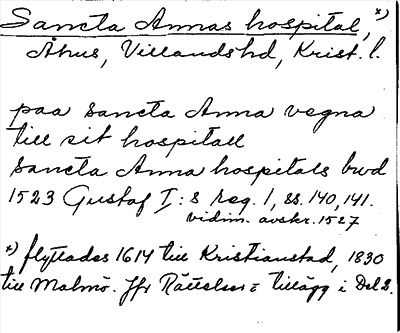 Sancta Annas hospital, x)
Åhus, Villandshd, Krist. l.
paa sancta Anna vegna
till sit hospitall
sancta Anna hospitals bwd
1523 Gustaf I:s reg. 1, ss. 140, 141.
vidim. avskr. 1527
x) flyttades 1614 till Kristianstad, 1830
till Malmö. Jfr Rättelser o tillägg i Del 2.